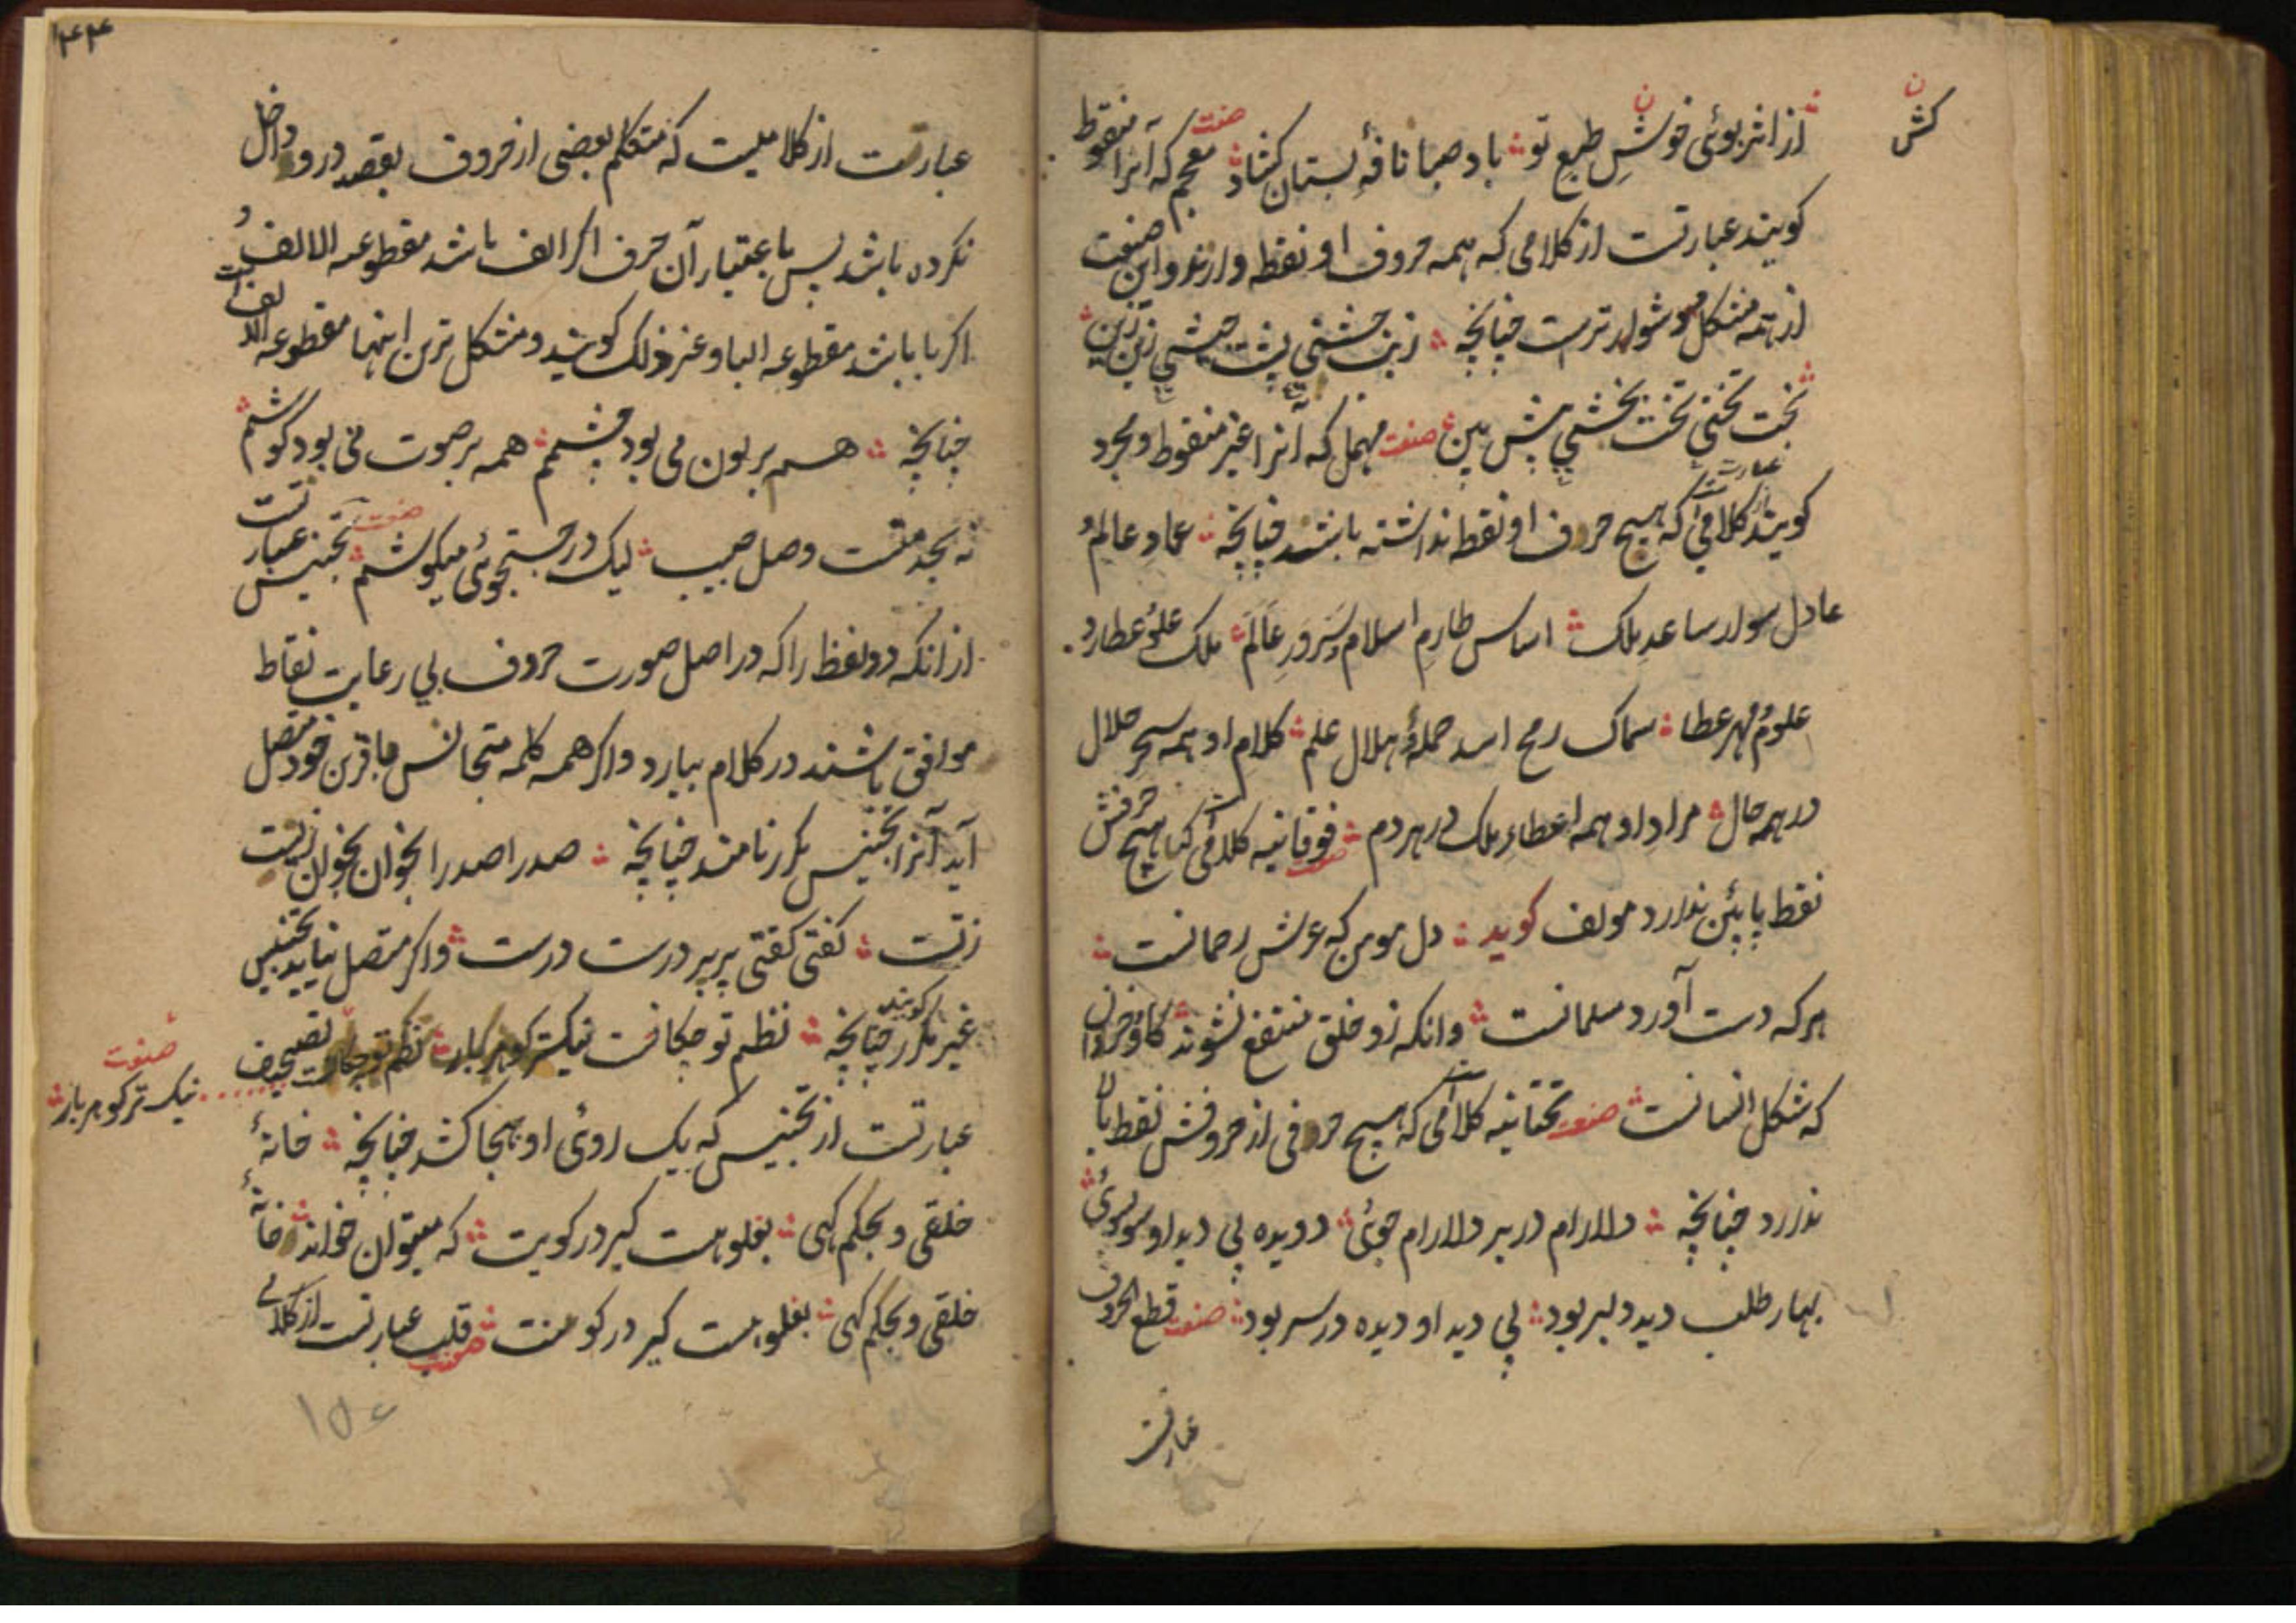 کش
از اثر بوئی خوشِ طبع تو باد صبا نافهٔ بستان کشاد صنعت معجم که آنرا منقوط
کویند عبارتست از کلامی که همه حروف او نقطه دارند و این صنعت
از همه مشکل و دشوار ترست چنانچه زین
بخت تختی تخت بخشی پیش بین صنعت مهمل که آنرا غیر منقوط و مجرد
کویند عبارت از کلامی است که هیچ حروف او نقط نداشته باشند چنانچه عماد عالمُ
عادل سوار ساعد ملک اساس طارم اسلام و سَرورِ عالَم ملک علوُ عطارد
علومُ مهر عطا سماک رمح اسد حملهٔ هلال علم کلام او همه سحر حلال
در همه حال مراد او همه اعطاءِ ملک در هر دم صنعت فوقانیه کلامی است که هیچ حرفش
نقط پایئن ندارد مولف کوید دل مومن که عرش رحمانست
هرکه دست آورد مسلمانست وانکه زو خلق منتفع نشوند کاو خر دان
که شکل انسانست صنعت تحتانیه کلامی است که هیچ حرفی از حروفش نقط بالا
ندارد چنانچه دلارام در بر دلارام جوئی دویده پی دید او سو بسوئی
بهار طلب دید دلبر بود پی دید او دیده در سر بود صنعت قطع الحروف
عبارتست
۱۴۴
عبارت از کلامیست که متکلم بعضی از حروف بقصد درو داخل
نکرده باشد پس باعتبار آن حرف اکر الف باشد مقطوعه الالف و
اکر با باشد مقطوعه البا و غیر ذلک کویند و مشکل ترین اینها مقطوعه الالف است
چنانچه همه بر بون می بود چشمم همه بر صوت نی بود کوشم
نه بجد منست وصل حبیب لیک در جستجوئی میکوشم صنعت تجنیس عبارتست
از انکه دو لفظ را که در اصل صورت حروف بی رعایت نقاط
موافق باشند در کلام بیارد و اکر همه کلمه متجانس با قرین خود متصل
آید آنرا تجنیس مکرر نامند چنانچه صدرا صدرا بخوان بخوان زیست
زتست کفتی کفتی پر پر درست درست و اکر متصل نیاید تجنیس
غیر مکرر کویند چنانچه نظم تو چکافت نیکتر کوهر بار نظم تو تصحیف
صنعت
نیک تر کوهر بار
عبارتست از تجنیس که بیک روی او بهجا کشد چنانچه خانهٔ
خلقی و بحکم کهی بغلو هست کیر در کویت که میتوان خواند خانهٔ
خلقی و بحکم کهی بغلو هست کیر در کو منت صنعت قلب عبارتست از کلامی
۱۵۶